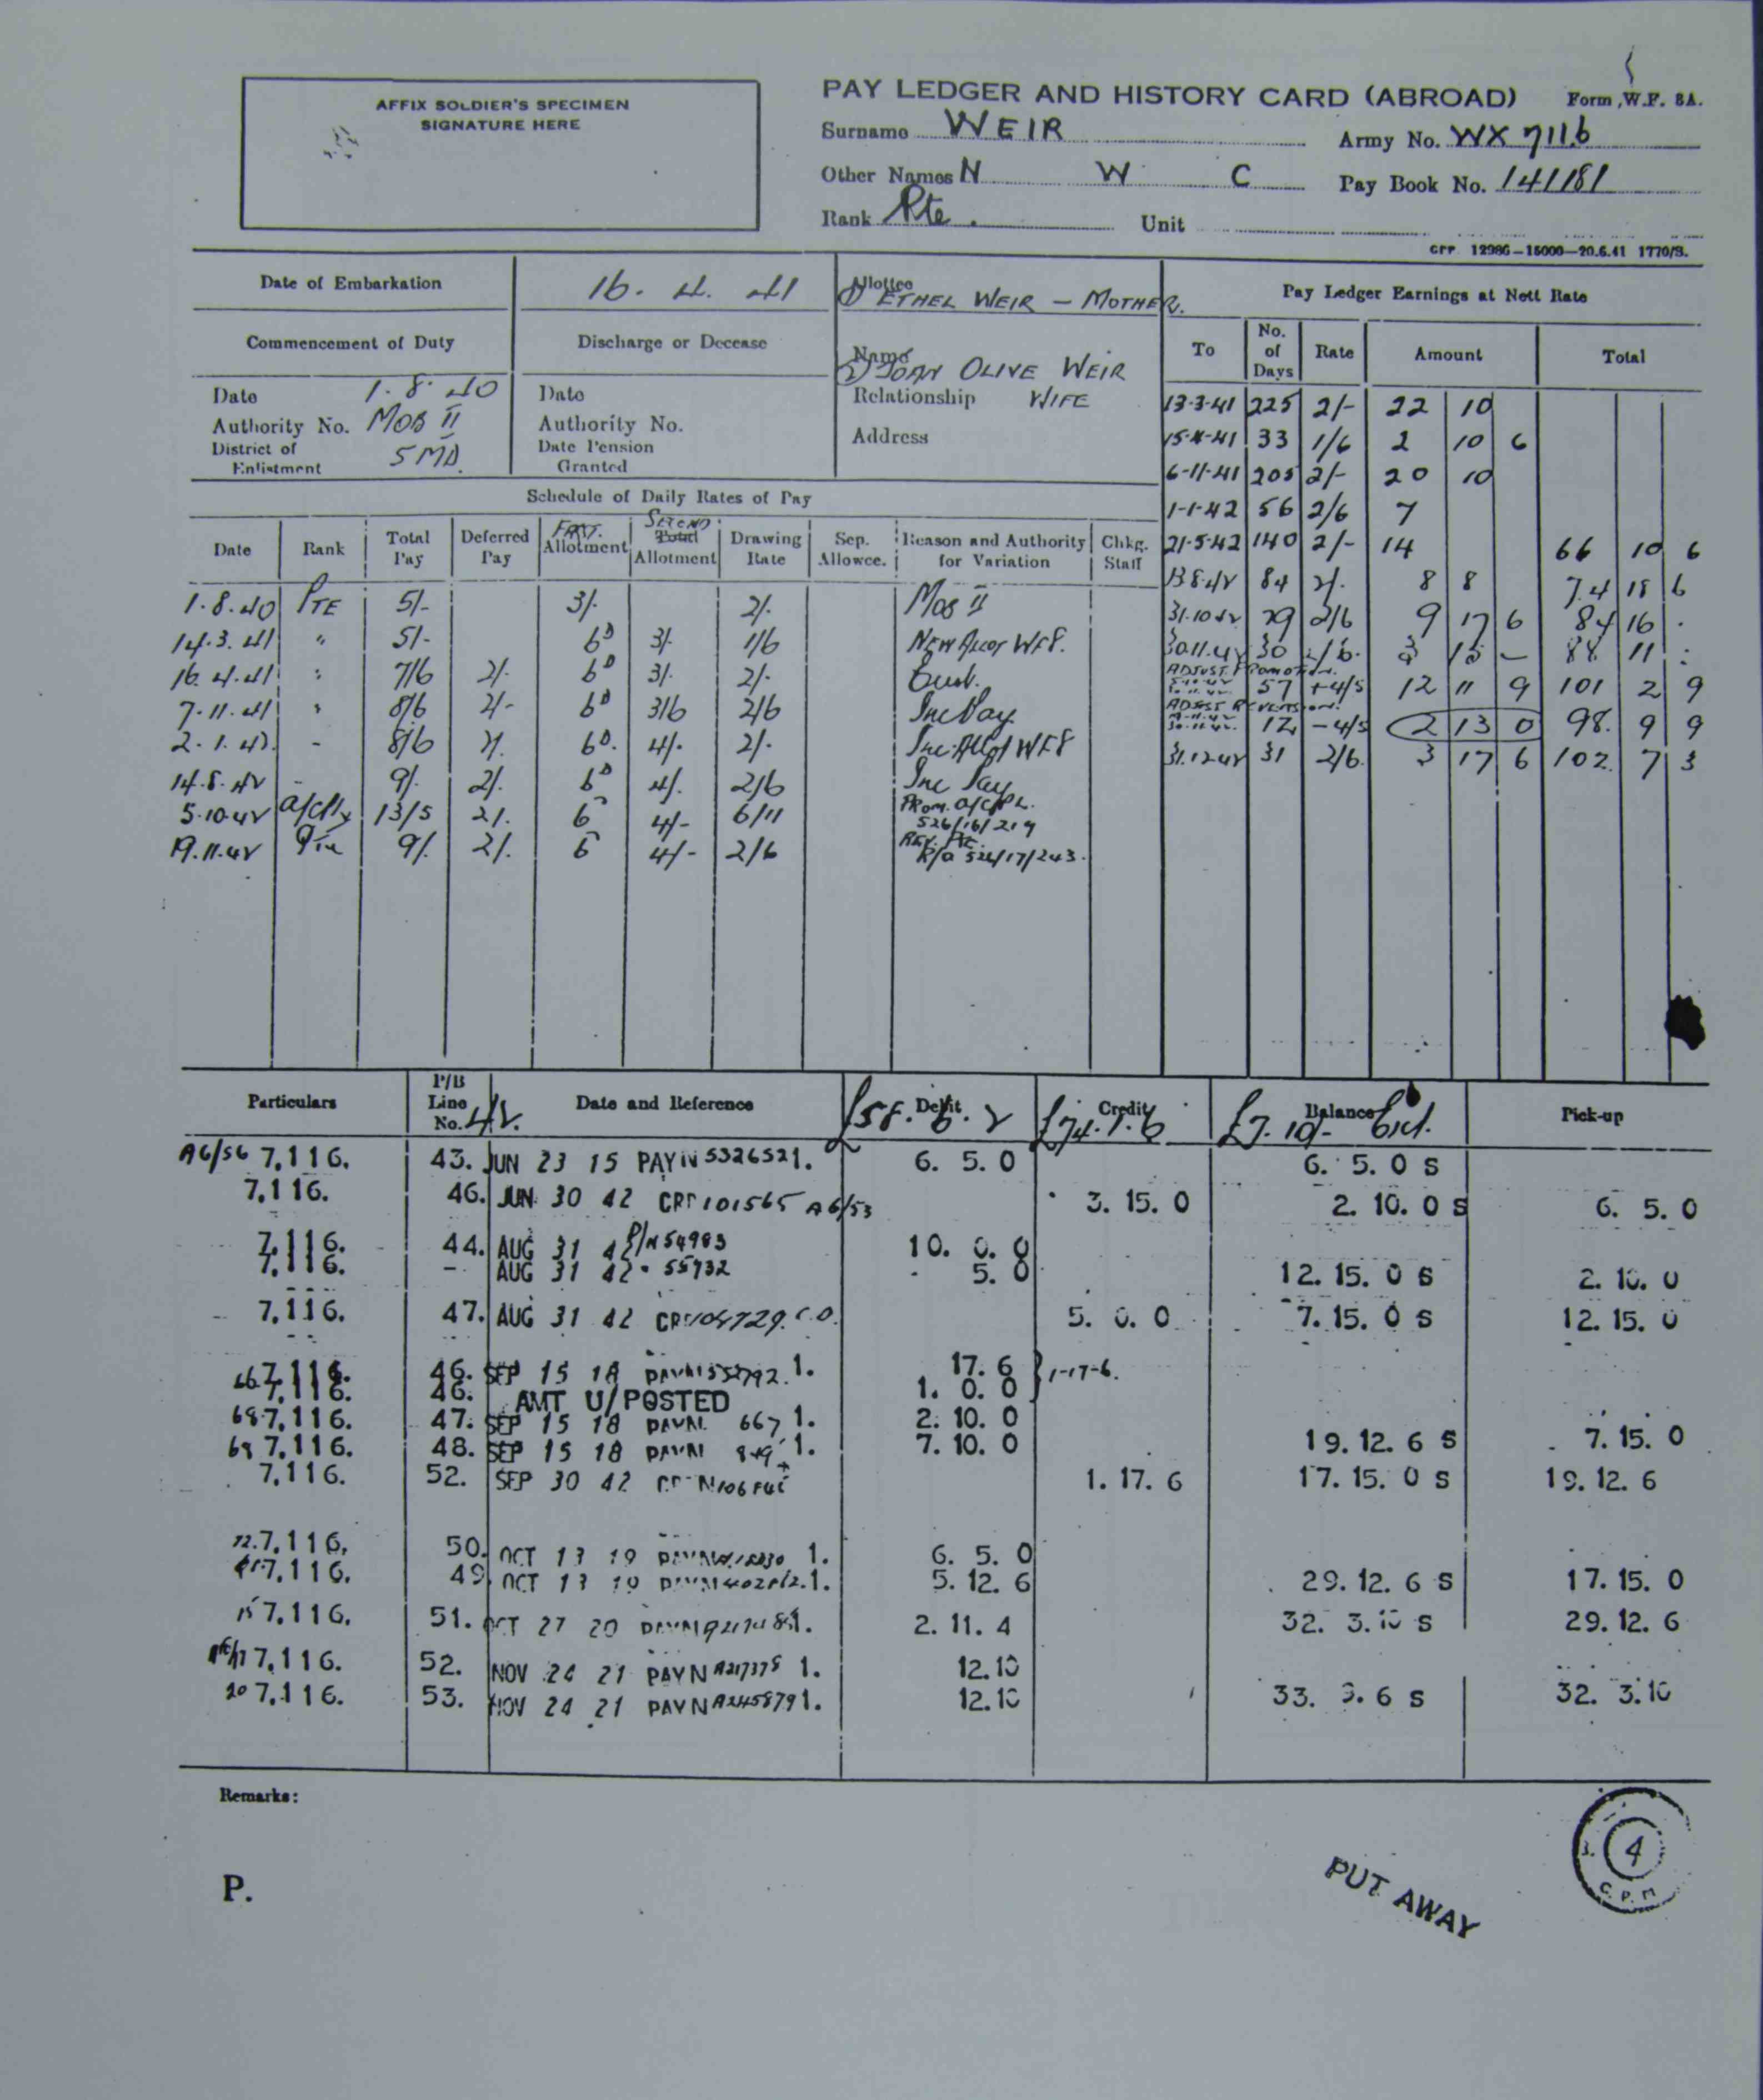 AFFIX SOLDIER'S SPECIMEN
SIGNATURE HERE
PAY LEDGER AND HISTORY CARD (ABROAD) Form W.F. 8A.
Surname WEIR Army No. WX 7116
Other Names N W C Pay Book No. 141181
Rank Pte. Unit
GPP 12986—15000—20.6.41 1770/S.
Date of Embarkation 16. 4. 41
Commencement of Duty
Date 1.8.40
Authority No. MOB II
District of Enlistment 5 MD.
Discharge or Decease
Date
Authority No.
Date Pension Granted
Allottee
① ETHEL WEIR — MOTHER.
Name
② JOAN OLIVE WEIR
Relationship WIFE
Address
Pay Ledger Earnings at Nett Rate
To No. of Days Rate Amount Total
13-3-41 225 2/- 22 10
15-4-41 33 1/6 2 10 6
6-11-41 205 2/- 20 10
1-1-42 56 2/6 7
21-5-42 140 2/- 14 66 10 6
13.8.42 84 2/. 8 8 74 18 6
31.10.42 79 2/6 9 17 6 84 16 .
30.11.42 30 2/6 3 15 — 88 11 :
ADJUST. PROMOTION
57 +4/5 12 11 9 101 2 9
ADJUST REVERSION.
12 -4/5 2 13 0 98. 9 9
31.12.42 31 2/6 3 17 6 102. 7 3
Schedule of Daily Rates of Pay
Date Rank Total Pay Deferred Pay FIRST. Allotment SECOND Total Allotment Drawing Rate Sep. Allowce. Reason and Authority for Variation Chkg. Staff
1.8.40 PTE 5/- 3/. 2/. MOB II
14.3.41 " 5/- 6D 3/. 1/6 NEW ALLOT WF8.
16.4.41 " 7/6 2/. 6D 3/. 2/. Emb.
7.11.41 " 8/6 2/- 6D 3/6 2/6 Inc Pay
2.1.42 - 8/6 2/. 6D. 4/. 2/. Inc Allot WF8
14.8.42 - 9/. 2/. 6D 4/. 2/6 Inc Pay
5.10.42 A/Cpl 13/5 2/. 6 4/- 6/11 PROM. A/CPL.
526/16/219
19.11.42 Pte 9/. 2/. 6 4/- 2/6 REV. PTE.
R/O 526/17/243.
Particulars P/B Line No. 42. Date and Reference £58. 6. 2 Debit £74. 7. 6 Credit £7. 10/- Balance Pick-up
A6/56 7,116. 43. JUN 23 15 PAYN 5326521. 6. 5. 0 6. 5. 0 S
7,116. 46. JUN 30 42 CRP 101565 A6/53 3. 15. 0 2. 10. 0 S 6. 5. 0
7,116. 44. AUG 31 42 P/N 54983 10. 0. 0
7,116. — AUG 31 42 " 55932 5. 0 12. 15. 0 S 2. 10. 0
7,116. 47. AUG 31 42 104729. C.O. 5. 0. 0 7. 15. 0 S 12. 15. 0
7,116. 46. SEP 15 18 PAYN 1. 17. 6
7,116. 46. AMT U/POSTED 1. 0. 0 } 1-17-6.
68 7,116. 47. SEP 15 18 PAYN. 667 1. 2. 10. 0
68 7,116. 48. SEP 15 18 PAYN 849 1. 7. 10. 0 19. 12. 6 S 7. 15. 0
7,116. 52. SEP 30 42 1. 17. 6 17. 15. 0 S 19. 12. 6
72. 7,116. 50. OCT 13 19 PAYN 1. 6. 5. 0
7,116. 49. OCT 13 19 PAYN 1. 5. 12. 6 29. 12. 6 S 17. 15. 0
15 7,116. 51. OCT 27 20 PAYN 1. 2. 11. 4 32. 3. 10 S 29. 12. 6
7,116. 52. NOV 24 21 PAYN A217378 1. 12. 10
20 7,116. 53. NOV 24 21 PAYN A245879 1. 12. 10 33. 9. 6 S 32. 3. 10
Remarks:
P.
PUT AWAY
4
C.P.M